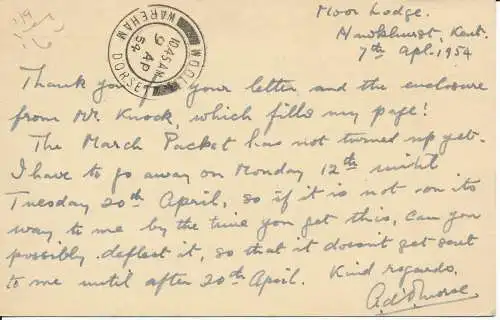 Moor Lodge.
Hawkhurst, Kent.
7th Apl. 1954
WOOL
WAREHAM DORSET
10.45 AM
9 AP
54
Thank you your letter and the enclosure
from Mr. Knock, which fills my page!
The March Packet has not turned up yet.
I have to go away on Monday 12th until
Tuesday 20th April, so if it is not on its
way to me by the time you get this, can you
possibly deflect it, so that it doesn't get sent
to me until after 20th April. Kind regards.